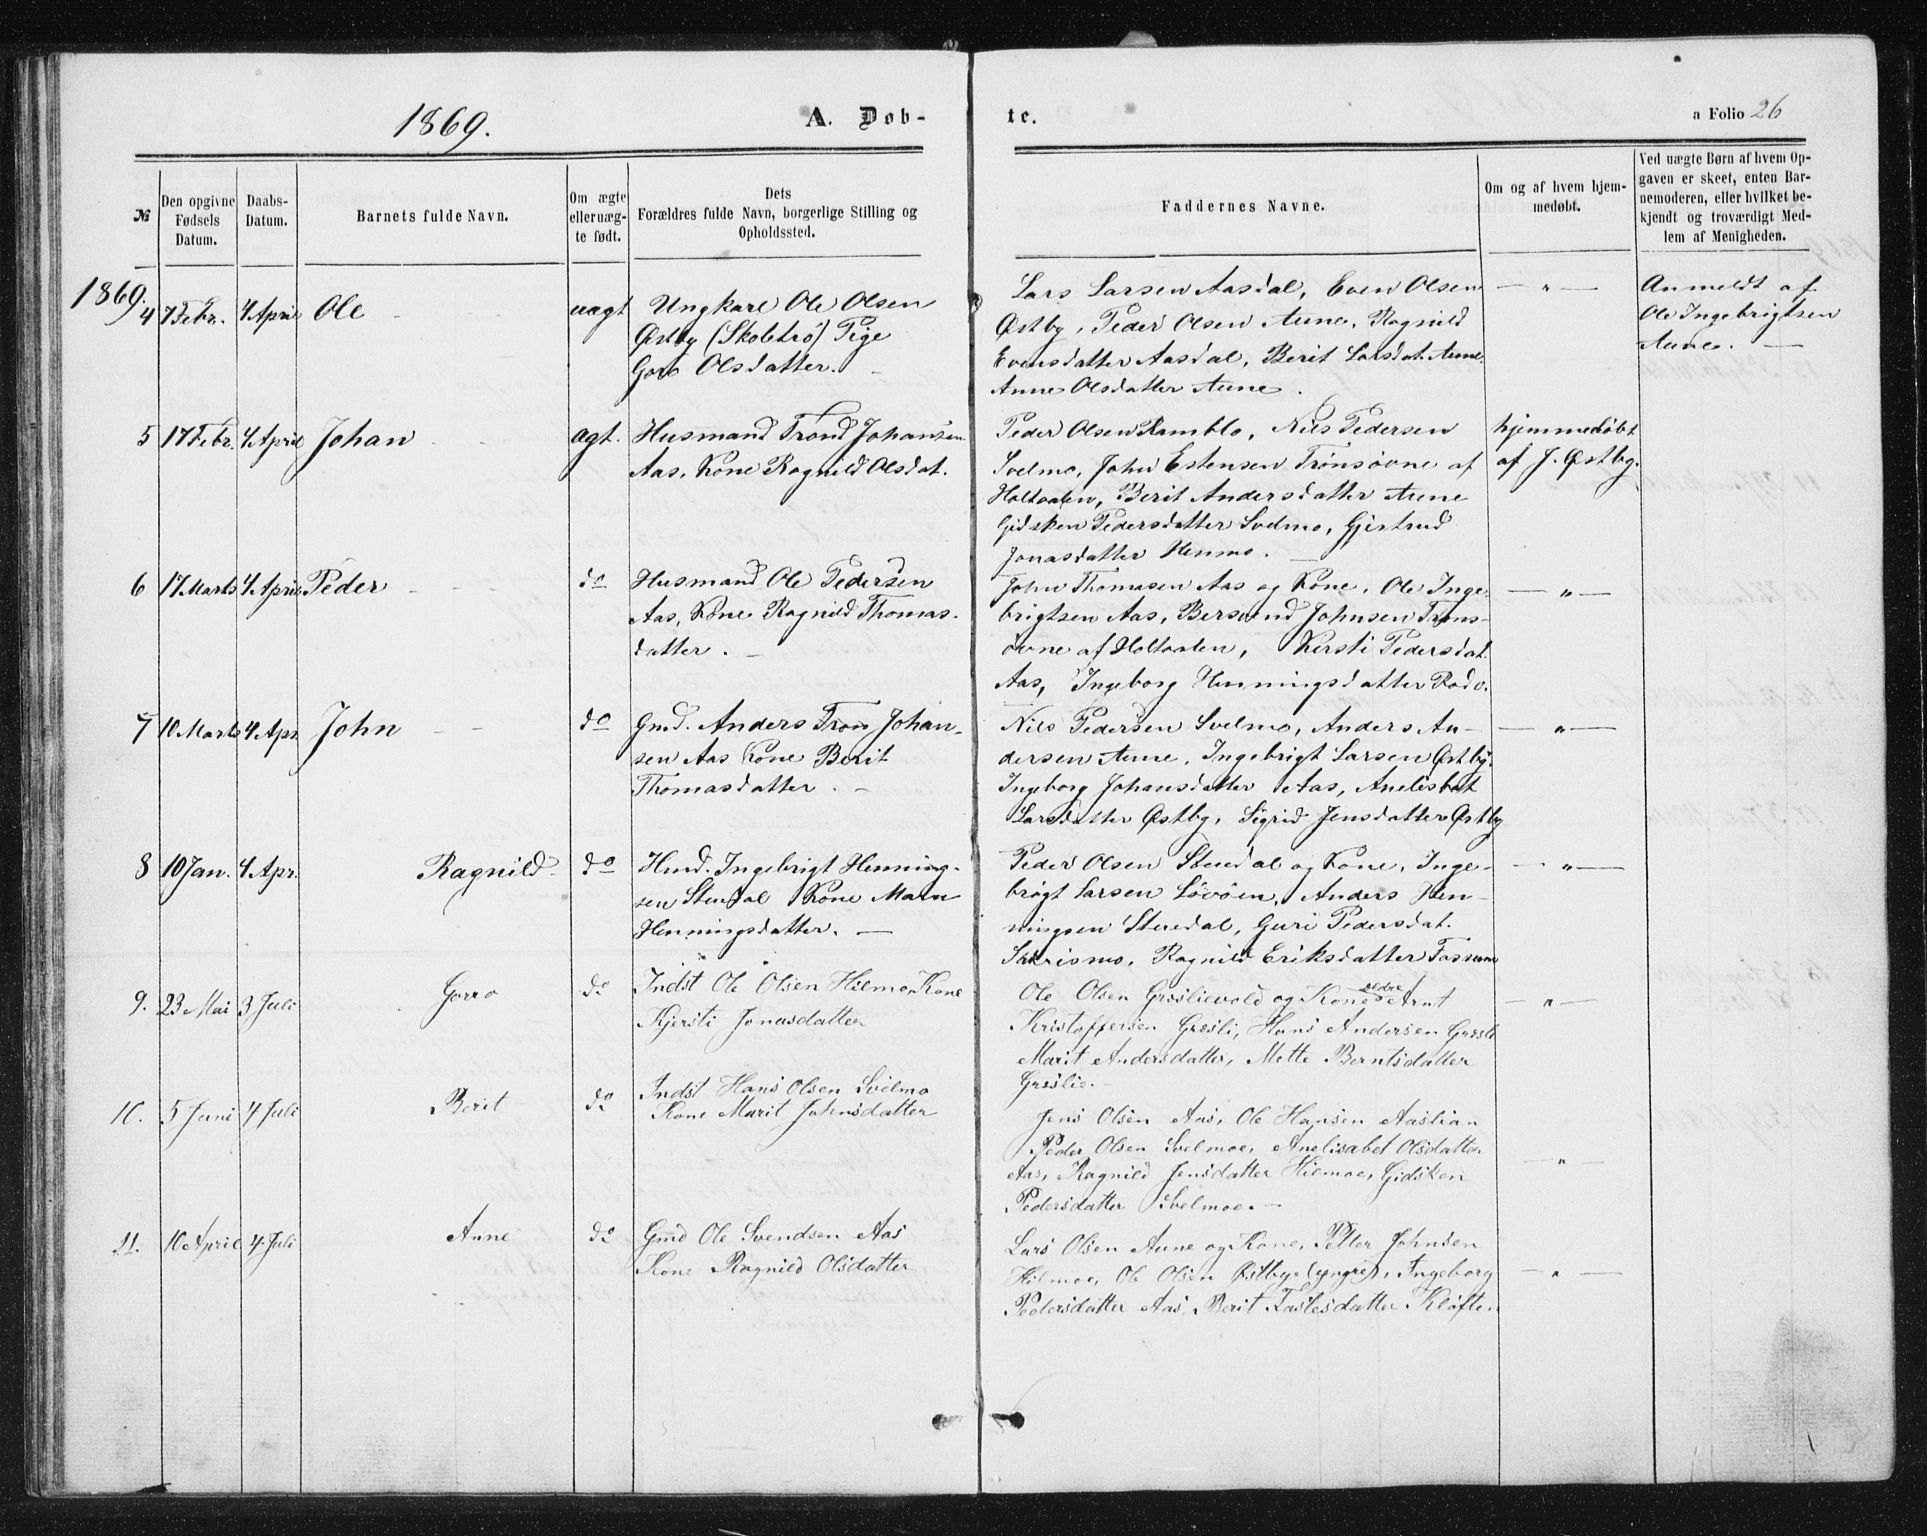 1869.
A. Døb-
te.
a Folio 26
№
Den opgivne
Fødsels
Datum.
Daabs-
Datum.
Barnets fulde Navn.
Om ægte
eller uæg-
te født.
Dets
Forældres fulde Navn, borgerlige Stilling og
Opholdssted.
Faddernes Navne.
Om og af hvem hjem-
medøbt.
Ved uægte Børn af hvem Op-
gaven er skeet, enten Bar-
nemoderen, eller hvilket be-
kjendt og troværdigt Med-
lem af Menigheden.
1869.
4 7 Febr. 4 April Ole uægt
Ungkarl Ole Olsen
Østby (Skoletrø) Pige
Goro Olsdatter.
Lars Larsen Aasdal, Even Olsen
Østby, Peder Olsen Aune, Ragnild
Evensdatter Aasdal, Berit Larsdat. Aune.
Anne Olsdatter Aune.
— „ —
Anmeldt af
Ole Ingebrigtsen
Aune. —
5 17 Febr. 4 April Johan ægt.
Husmand Trond Johansen
Aas, Kone Ragnild Olsdat.
Peder Olsen Ramblo, Nils Pedersen
Svelmo, John Estensen Trønsøvne af
Holtaalen, Berit Andersdatter Aune
Gidsken Pedersdatter Svelmo, Gjertrud
Jonasdatter Henmo. —
hjemmedøbt
af J. Østby.
6 17 Marts 4 April Peder do
Husmand Ole Pedersen
Aas, Kone Ragnild Thomas-
datter. —
John Thomasen Aas og Kone, Ole Inge-
brigtsen Aas, Bersvend Johnsen Trøns-
øvne af Holtaalen, Kersti Pedersdat.
Aas, Ingeborg Henningsdatter Rodo.
— „ —
7 10 Marts 4 Apr. John do
Gmd. Anders Tron Johan-
sen Aas Kone Berit
Thomasdatter. —
Nils Pedersen Svelmo, Anders An-
dersen Aune, Ingebrigt Larsen Østby,
Ingeborg Johansdatter Aas, Anelisbet
Larsdatter Østby, Sigrid Jensdatter Østby
— „ —
8 10 Jan. 4 Apr. Ragnild do
Husd. Ingebrigt Henning-
sen Stendal Kone Malu
Henningsdatter. —
Peder Olsen Stendal og Kone, Inge-
brigt Larsen Løvøen, Anders Hen-
ningsen Stendal, Guri Pedersdat.
Sakrismo, Ragnild Eriksdatter Fossum
— „ —
9. 23 Mai 3 Juli Gorro do
Indst Ole Olsen Hilmo Kone
Kjersti Jonasdatter
Ole Olsen Græslievold og Kone, Arnt
Kristoffersen Græsli, Hans Andersen Græsli
Marit Andersdatter, Mette Berntsdatter
Græslie. —
— „ —
10. 5 Juni 4 Juli Berit do
Indst Hans Olsen Svelmo
Kone Marit Johnsdatter
Jens Olsen Aas, Ole Hansen Aaslian
Peder Olsen Svelmoe, Anelisabet Olsdatter
Aas, Ragnild Jensdatter Hilmoe, Gidsken
Pedersdatter Svelmoe. —
— „ —
11. 10 April 4 Juli Anne do
Gmd Ole Svendsen Aas
Kone Ragnild Olsdatter
Lars Olsen Aune og Kone, Petter Johnsen
Hilmoe, Ole Olsen Østbye (yngre), Ingeborg
Pedersdatter Aas, Berit Taslesdatter Kløften
— „ —